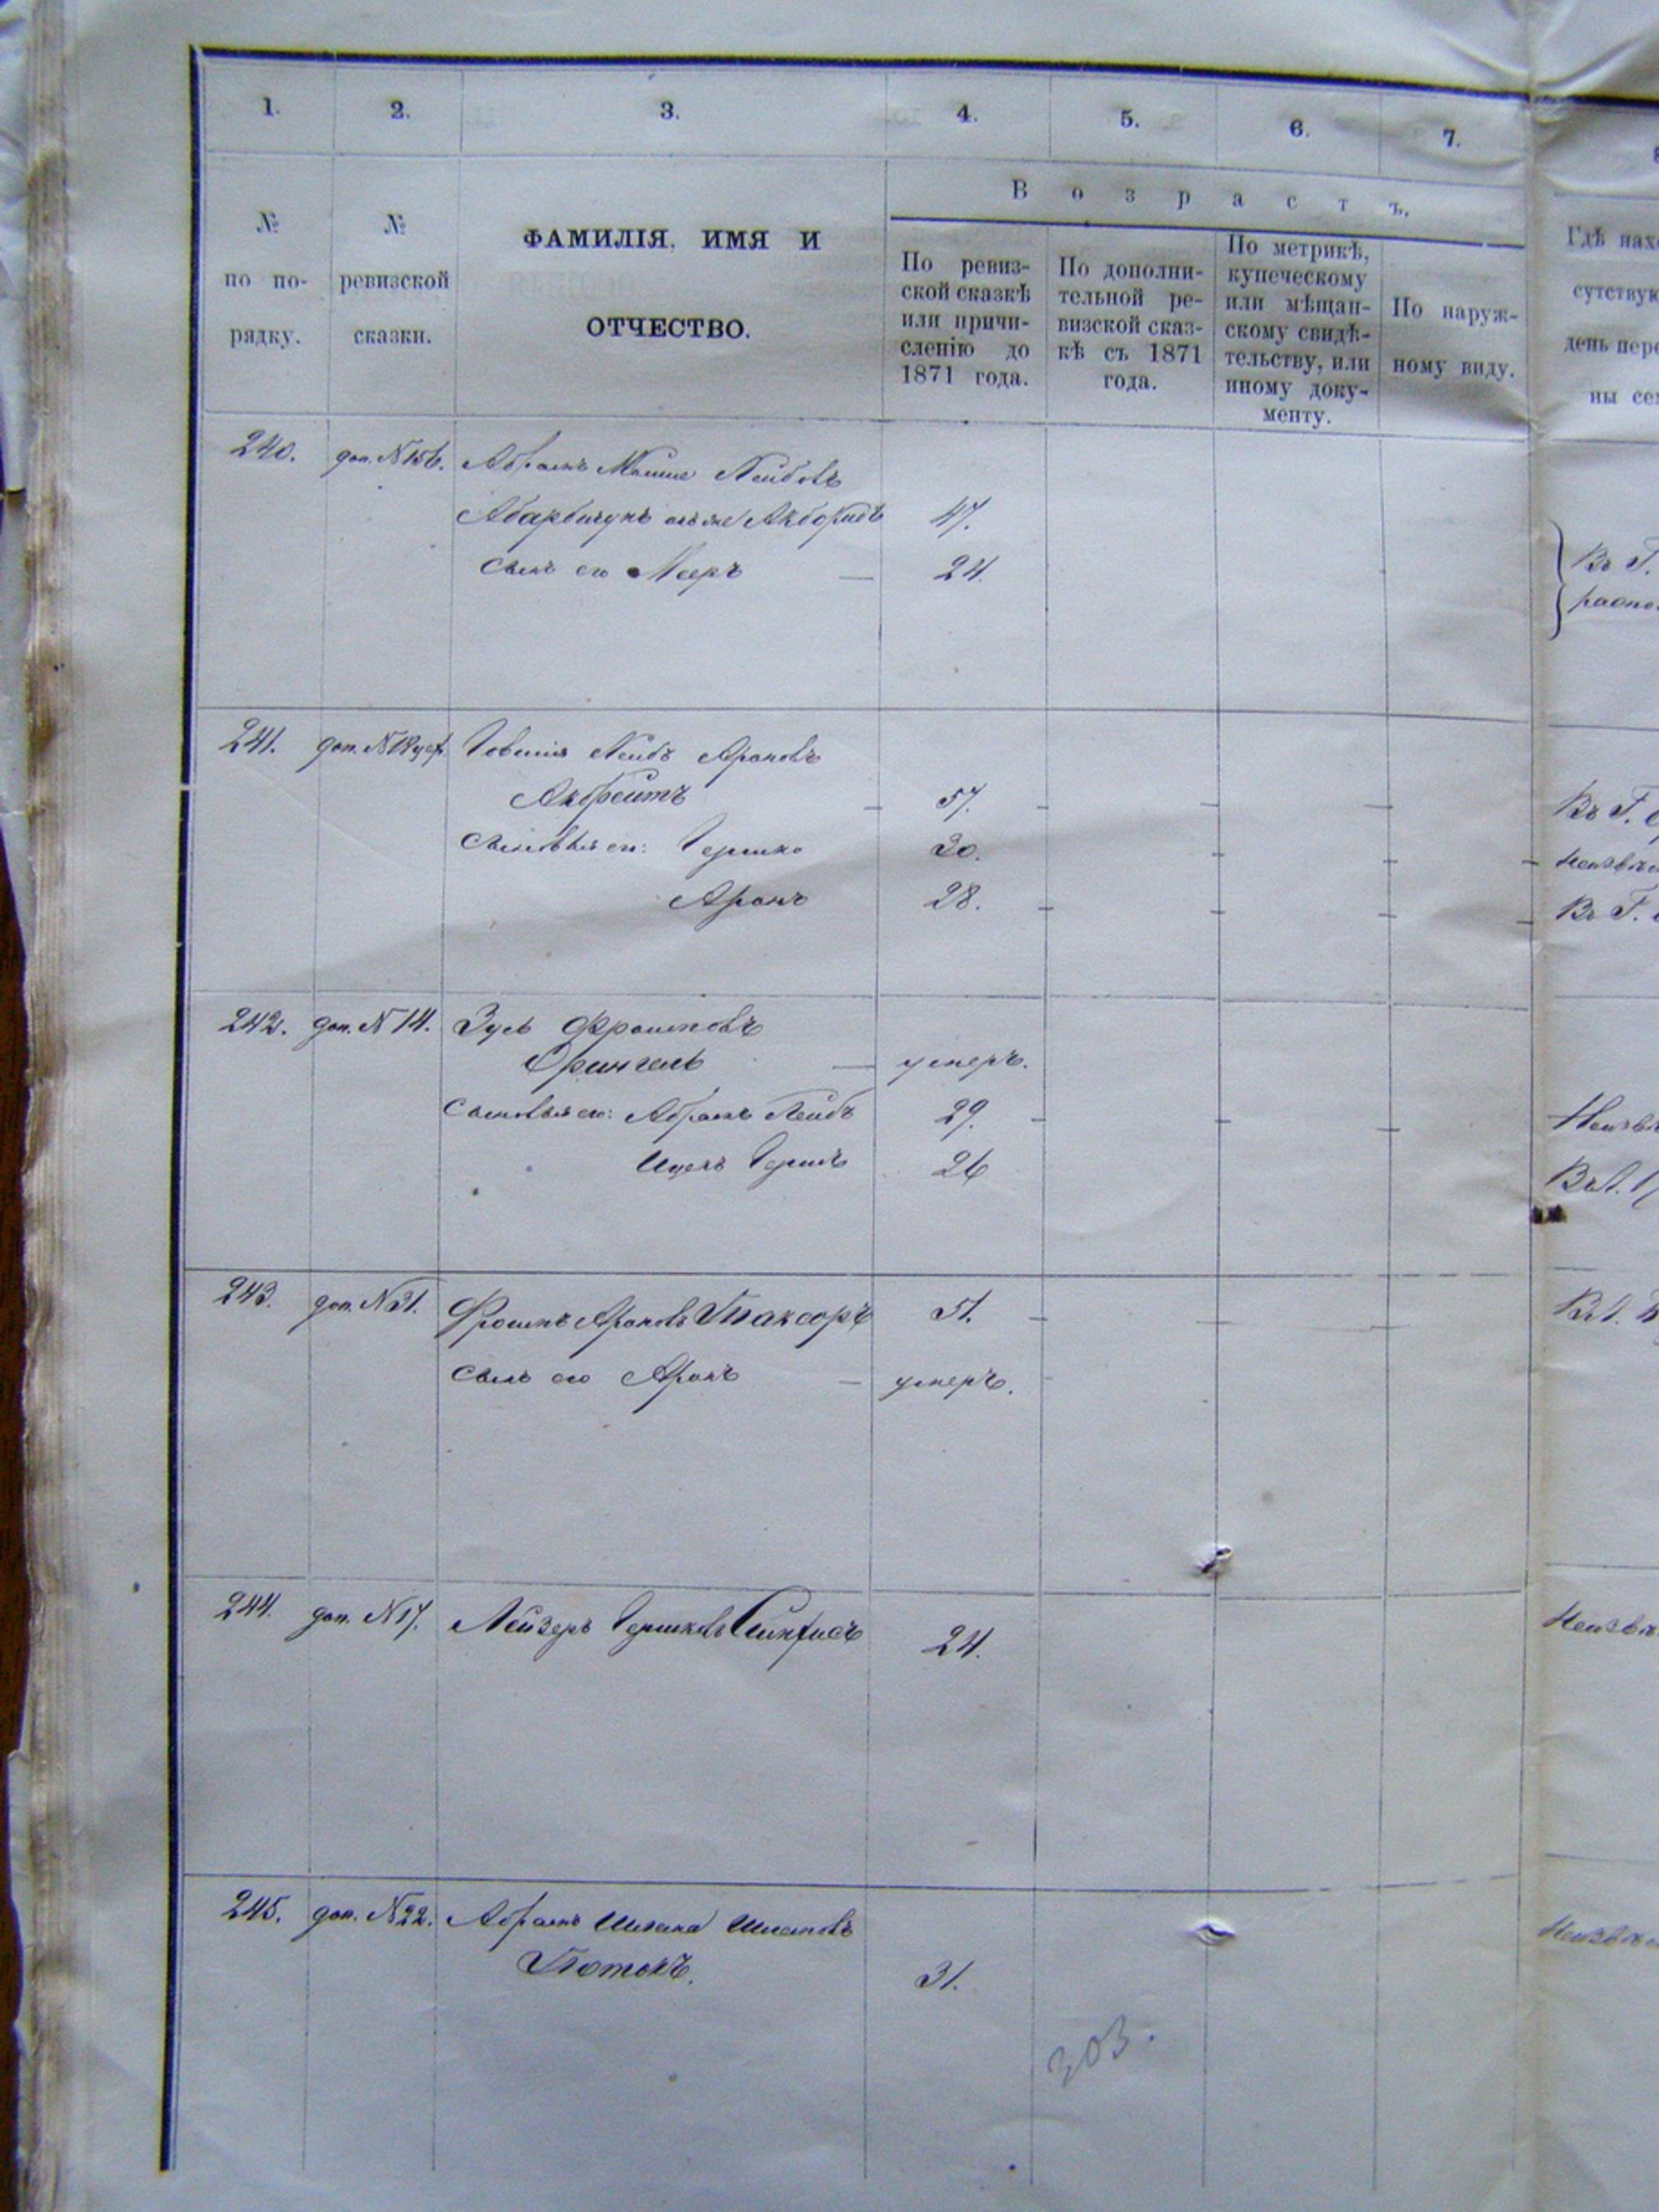 1. 2. 3. 4. 5. 6. 7.
№ по по-рядку.
№ ревизской сказки.
ФАМИЛІЯ, ИМЯ И ОТЧЕСТВО.
Возрастъ.
По ревиз-
ской сказкѣ
или причи-
сленію до
1871 года.
По дополни-
тельной ре-
визской сказ-
кѣ съ 1871
года.
По метрикѣ,
купеческому
или мѣщан-
скому свидѣ-
тельству, или
иному доку-
менту.
По наруж-
ному виду.
Гдѣ нахо
сутствую
день пере
ны се
240. доп. N 156. Абрамъ Мошие Лейбовъ
онъ же 47.
Сынъ его Мееръ — 24.
Въ Г.
241. доп. Лейбъ Ароновъ
Акбреитъ 57.
Сыновья его: Гершко 30.
Аронъ 28.
Въ Г.
Неизвѣ
Въ Г.
242. доп. N 14. Зусь Фроимовъ
Фрингель — умеръ.
Сыновья его: Абрамъ Лейбъ 29.
Ицекъ Гершъ 26
Неизвѣ
243. доп. N 31. Фроимъ Ароновъ Таксоръ 51.
Сынъ его Аронъ — умеръ.
244. доп. N 17. Лейзеръ Гершковъ 24.
Неизвѣ
245. доп. N 22. Абрамъ
Потокъ. 31.
Неизвѣ
303.